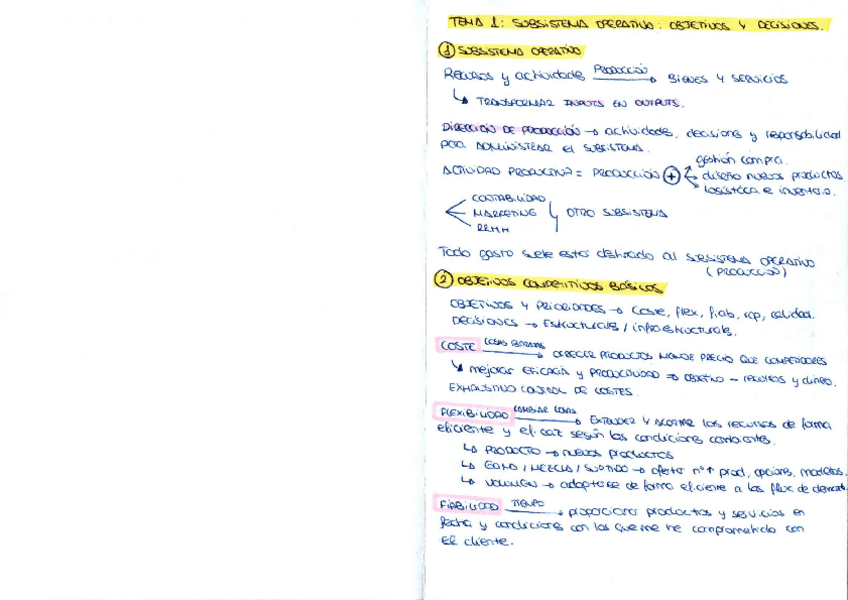 TEMA 1: SUBSISTEMA OPERATIVO: OBJETIVOS Y DECISIONES.
① SUBSISTEMA OPERATIVO
Recursos y actividades PRODUCCIÓN → BIENES Y SERVICIOS
↳ TRANSFORMAR INPUTS EN OUTPUTS.
DIRECCIÓN DE PRODUCCIÓN → actividades, decisiones y responsabilidad
para ADMINISTRAR el SUBSISTEMA.
ACTIVIDAD PRODUCTIVA = PRODUCCIÓN ⊕ gestión compra.
diseño nuevos productos.
logística e inventario.
CONTABILIDAD
MARKETING OTRO SUBSISTEMA
RRHH
Todo gasto suele estar destinado al SUBSISTEMA OPERATIVO
(PRODUCCIÓN)
② OBJETIVOS COMPETITIVOS BÁSICOS
OBJETIVOS Y PRIORIDADES → Coste, flex, fiab, rap, calidad.
DECISIONES → Estructurales / infraestructurals.
COSTE → OFRECER PRODUCTOS MENOR PRECIO QUE COMPETIDORES
↳ mejorar EFICACIA y PRODUCTIVIDAD → OBJETIVO – recursos y dinero.
EXHAUSTIVO CONTROL DE COSTES.
FLEXIBILIDAD → EXTENDER Y ACORTAR los recursos de forma
eficiente y eficaz según las condiciones cambiantes.
↳ PRODUCTO → nuevos productos
↳ GAMA / MEZCLA / SURTIDO → ofertar nº↑ prod, opciones, modelos.
↳ VOLUMEN → adaptarse de forma eficiente a los flux de demanda.
FIABILIDAD TIEMPO → proporcionar productos y servicios en
fecha y condiciones con las que me he comprometido con
EL cliente.